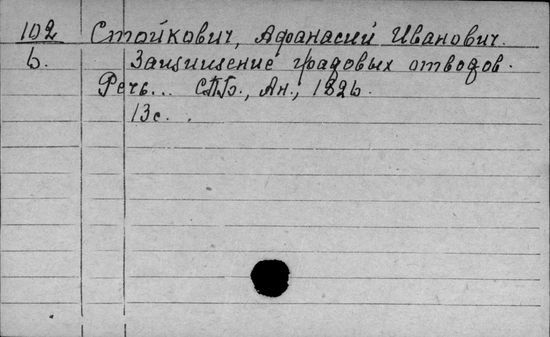 102 Стойкович, Афанасий Иванович.
Ь. Защищение градовых отводов.
Речь... СПБ., Ан., 1826.
13с.